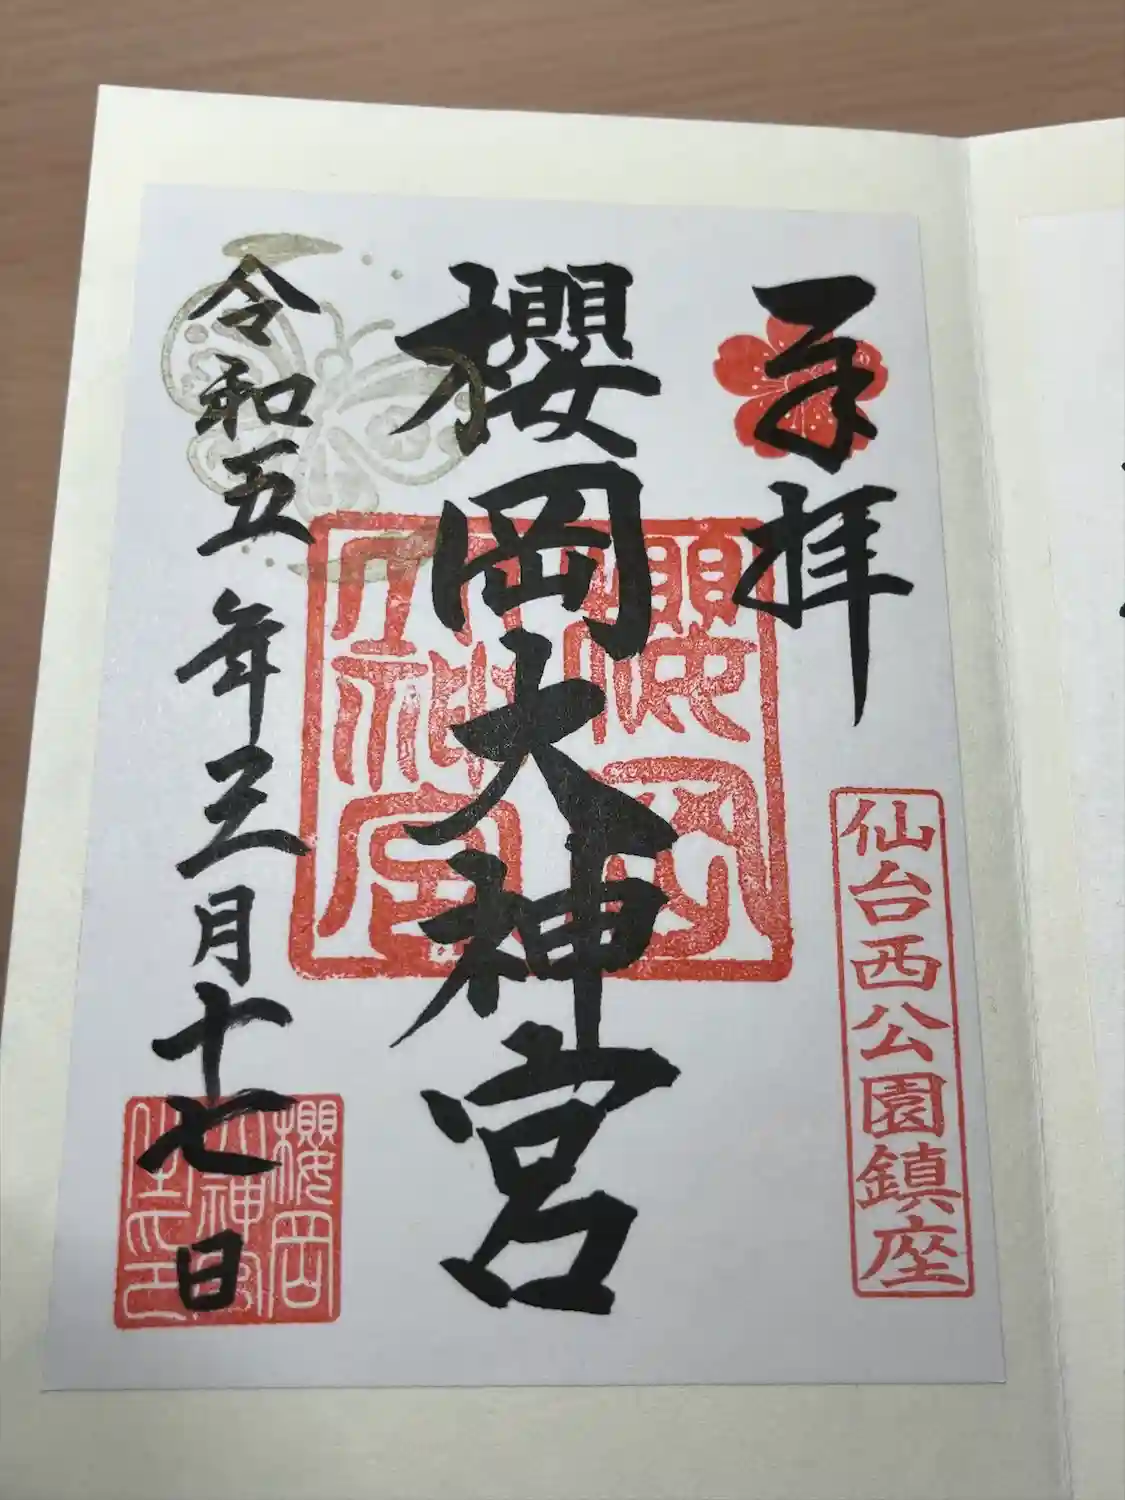 奉拝
仙台西公園鎮座
櫻岡大神宮
櫻岡
大神宮
令和五年三月十七日
櫻岡
大神宮